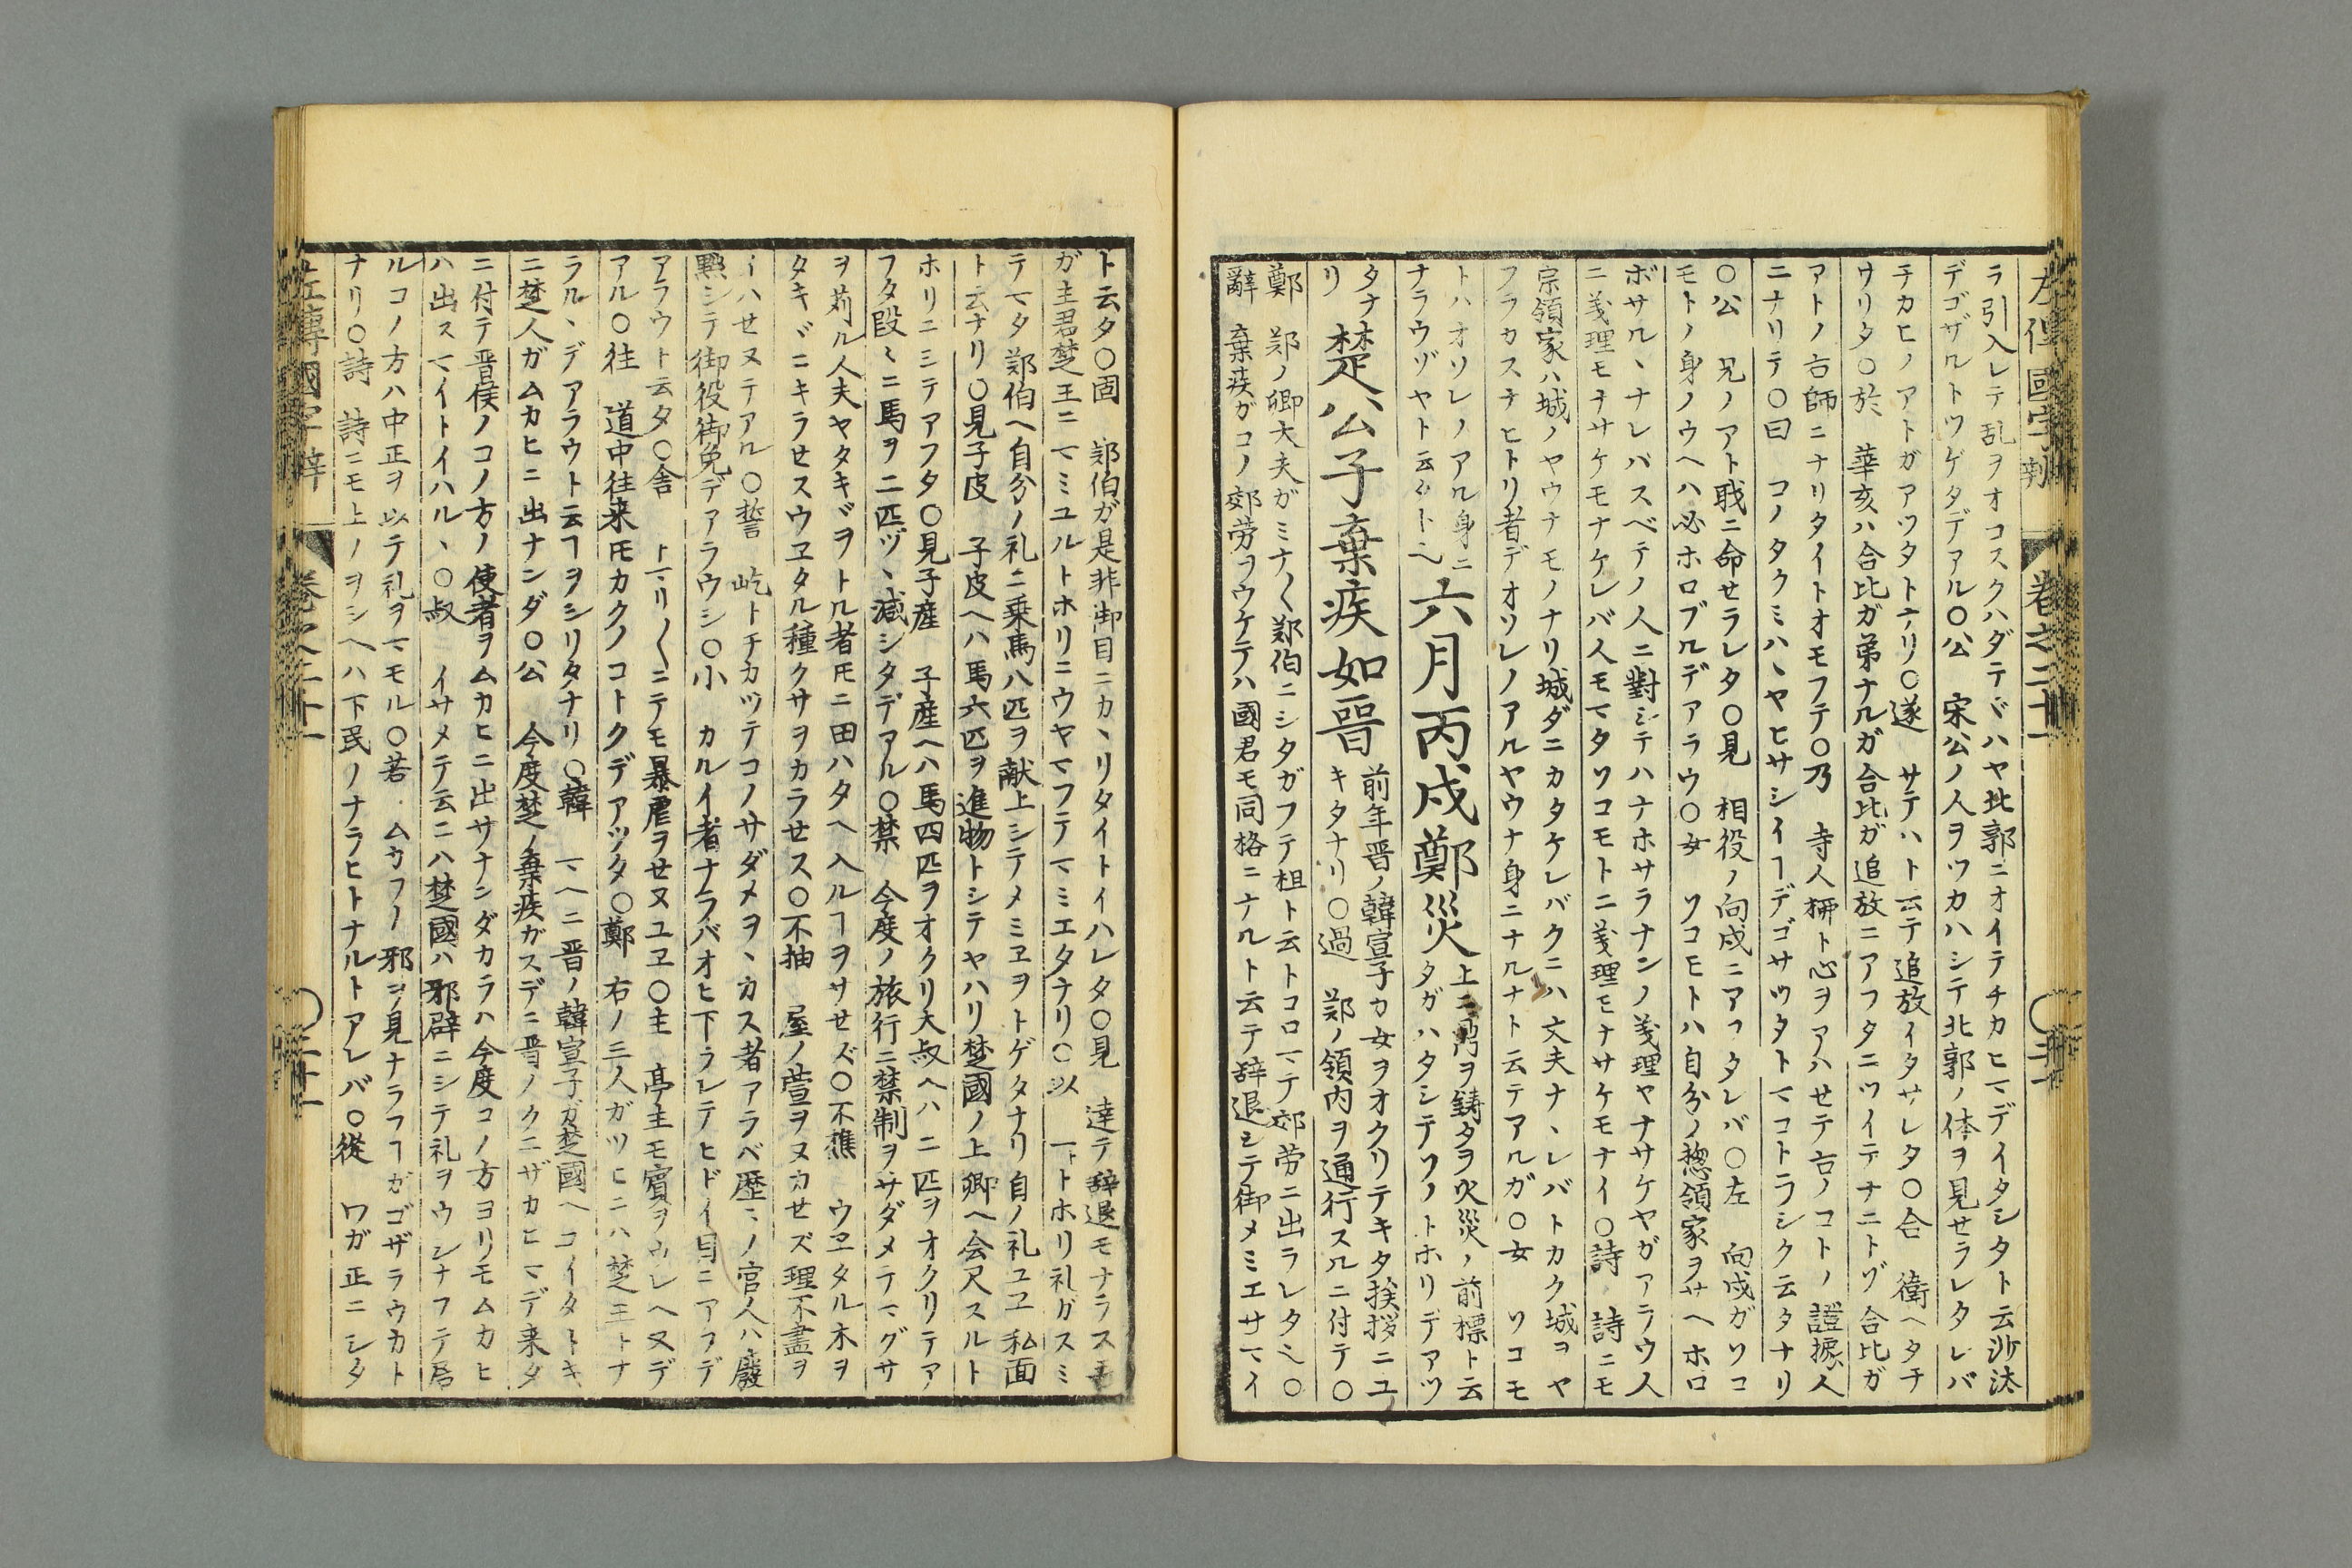 ラ引入レテ乱ヲオコスクハダテヾハヤ北郭ニオイテチカヒマデイタシタト云沙汰
デゴザルトツゲタデアル〇公 宋公ノ人ヲツカハシテ北郭ノ体ヲ見セラレタレバ
チカヒノアトガアツタトナリ〇遂 サテハト云テ追放イタサレタ〇合 衛ヘタチ
サリタ〇於 華亥ハ合比ガ弟ナルガ合比ガ追放ニアフタニツイテナニトゾ合比ガ
アトノ右師ニナリタイトオモフテ〇乃 寺人栁ト心ヲアハセテ右ノコトノ證據人
ニナリテ〇曰 コノタクミハヽヤヒサシイヿデゴサツタトマコトラシク云タナリ
〇公 兄ノアト職ニ命セラレタ〇見 相役ノ向戌ニアフタレバ〇左 向戌ガソコ
モトノ身ノウヘハ必ホロブルデアラウ〇女 ソコモトハ自分ノ惣領家ヲサヘホロ
ボサルヽナレバスベテノ人ニ對シテハナホサラナンノ義理ヤナサケヤガアラウ人
ニ義理モナサケモナケレバ人モマタソコモトニ義理モナサケモナイ〇詩 詩ニモ
宗領家ハ城ノヤウナモノナリ城ダニカタケレバクニハ丈夫ナヽレバトカク城ヲヤ
フラカスナヒトリ者デオソレノアルヤウナ身ニナルナト云テアルガ〇女 ソコモ
トハオソレノアル身ニ
ナラウゾヤト云
六月丙戌鄭災
上ニ鼎ヲ鋳タヲ火災ノ前標ト云
タガハタシテソノトホリデアツ
タナ
リ
楚公子棄疾如晉
前年晋ノ韓宣子カ女ヲオクリテキタ挨拶ニユ
キタナリ〇過 鄭ノ領内ヲ通行スルニ付テ〇
鄭 鄭ノ卿大夫ガミナ〱鄭伯ニシタガフテ柤ト云トコロマテ郊労ニ出ラレタ也〇
辭 棄疾ガコノ郊労ヲウケテハ國君モ同格ニナルト云テ辞退シテ御メミエサマイ
ト云タ〇固 鄭伯ガ是非御目ニカヽリタイトイハレタ〇見 達テ辞退モナラスユヱ
ガ主君楚王ニマミユルトホリニウヤマフテマミエタナリ〇以 一トホリ礼ガスミ
テマタ鄭伯ヘ自分ノ礼ニ乗馬八匹ヲ献上シテメミヱヲトゲタナリ自ノ礼ユヱ私面
ト云ナリ〇見子皮 子皮ヘハ馬六匹ヲ進物トシテヤハリ楚國ノ上卿ヘ会尺スルト
ホリニシテアフタ〇見子産 子産ヘハ馬四匹ヲオクリ大叔ヘハ二匹ヲオクリテア
フタ段〻ニ馬ヲ二匹ヅヽ減シタデアル〇禁 今度ノ旅行ニ禁制ヲサダメテマグサ
ヲ苅ル人夫ヤタキヾヲトル者𪜈ニ田ハタヘ入ルヿヲサセズ〇不樵 ウヱタル木ヲ
タキヾニキラセスウヱタル種クサヲカラセス〇不抽 屋ノ萱ヲヌカセズ理不盡ヲ
イハセヌテアル〇誓 屹トチカツテコノサダメヲヽカス者アラバ歴〻ノ官人ハ廢
黙シテ御役御免デアラウシ〇小 カルイ者ナラバオヒ下ラレテヒドイ目ニアフデ
アラウト云タ〇舎 トマリ〱ニテモ暴虐ヲセヌユヱ〇主 亭主モ賓ヲウレヘヌデ
アル〇往 道中往来𪜈カクノコトクデアツタ〇鄭 右ノ三人ガツヒニハ楚王トナ
ラルヽデアラウト云ヿヲシリタナリ〇韓 マヘニ晋ノ韓宣子ガ楚國ヘコイタトキ
ニ楚人ガムカヒニ出ナンダ〇公 今度楚ノ棄疾ガスデニ晋ノクニザカヒマデ来タ
ニ付テ晋侯ノコノ方ノ使者ヲムカヒニ出サナンダカラハ今度コノ方ヨリモムカヒ
ハ出スマイトイハルヽ〇叔 イサメテ云ニハ楚國ハ邪辟ニシテ礼ヲウシナフテ居
ルコノ方ハ中正ヲ以テ礼ヲマモル〇若 ムカフノ邪ヲ見ナラフヿガゴザラウカト
ナリ〇詩 詩ニモ上ノヲシヘハ下民ノナラヒトナルトアレバ〇從 ワガ正ニシタ
左傳國字辯 卷之二十一